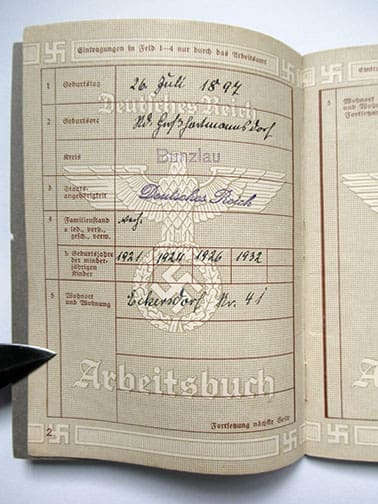 Eintragungen in Feld 1—4 nur durch das Arbeitsamt
1 Geburtstag 26. Juli 1897
Deutsches Reich
2 Geburtsort Nd. Großhartmannsdorf
Kreis Bunzlau
3 Staats-
angehörigkeit Deutsches Reich
4 Familienstand verh.
a led., verh.,
gesch., verw.
b Geburtsjahre 1921 1924 1926 1932
der minder-
jährigen
Kinder
5 Wohnort Eckersdorf Nr. 41
und Wohnung
Arbeitsbuch
Fortsetzung nächste Seite
2
5 Wohnort
und Wohnung